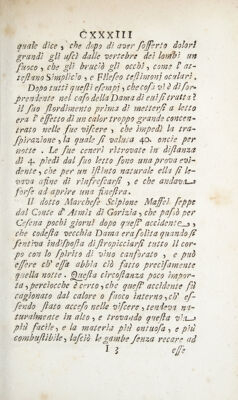 CXXXIII
quale dice, che dopo di aver sofferto dolori
grandi gli uscì dalle vertebre dei lombi un
fuoco, che gli bruciò gli occhi, come l' at-
testano Simplicio, e Filseo testimoni oculari.
Dopo tutti questi esempi, che cosa v'è di sor-
prendente nel caso della Dama di cui si tratta?
il suo stordimento prima di mettersi a letto
era l'effetto di un calor troppo grande concen-
trato nelle sue viscere, che impedì la tras-
pirazione, la quale si valuta 40. oncie per
notte. Le sue ceneri ritrovate in distanza
di 4. piedi dal suo letto sono una prova evi-
dente, che per un istinto naturale ella si le-
vava affine di rinfrescarsi, e che andava
forse ad aprire una finestra.
Il dotto Marchese Scipione Maffei seppe
dal Conte d' Atmis di Gorizia, che passò per
Cesena pochi giorni dopo quest' accidente,
che codesta vecchia Dama era solita quando si
sentiva indisposta di stropicciarsi tutto il cor-
po con lo spirito di vino canforato, e può
essere ch' essa abbia ciò fatto precisamente
quella notte. Questa circostanza poco impor-
ta, perciocchè è certo, che quest' accidente fù
cagionato dal calore o fuoco interno, ch' es-
sendo stato acceso nelle viscere, tendeva na-
turalmente in alto, e trovando questa via
più facile, e la materia più untuosa, e più
combustibile, lasciò le gambe senza recare ad
I 3 esse